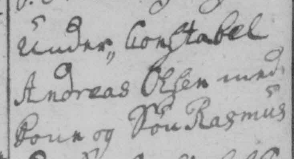 Under„ Constabel
Andreas Olsen med
Kone og Søn Rasmus